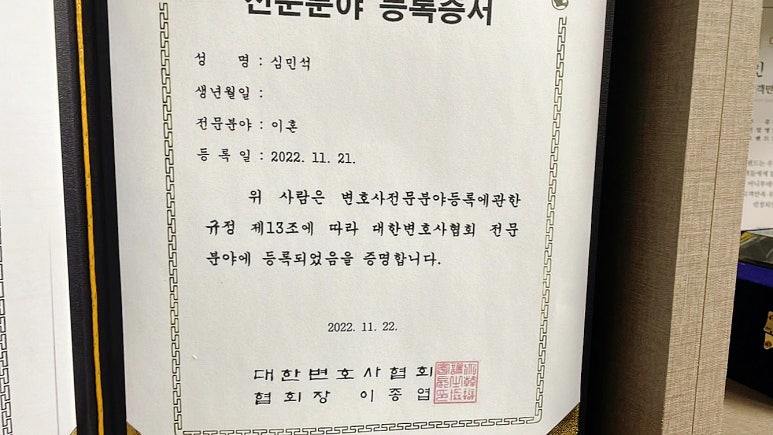 전문분야 등록증서
성 명 : 심민석
생년월일 :
전문분야 : 이혼
등 록 일 : 2022. 11. 21.
위 사람은 변호사전문분야등록에관한
규정 제13조에 따라 대한변호사협회 전문
분야에 등록되었음을 증명합니다.
2022. 11. 22.
대한변호사협회
협회장 이종엽